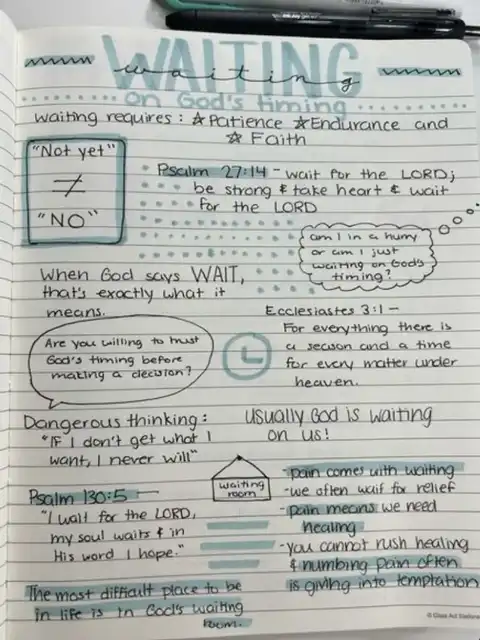 WAITING
waiting
on God's timing
waiting requires: ☆Patience ☆Endurance and
☆ Faith
"Not yet"
≠
"NO"
Psalm 27:14 - wait for the LORD;
be strong & take heart & wait
for the LORD
am I in a hurry
or am I just
waiting on God's
timing?
When God says WAIT,
that's exactly what it
means.
Ecclesiastes 3:1 -
For everything there is
a season and a time
for every matter under
heaven.
Are you willing to trust
God's timing before
making a decision?
Dangerous thinking:
"IF I don't get what I
want, I never will"
usually God is waiting
on us!
waiting
room
Psalm 130:5 —
"I wait for the LORD,
my soul waits & in
His word I hope."
- pain comes with waiting
- we often wait for relief
- pain means we need
healing
- you cannot rush healing
& numbing pain often
is giving into temptation
The most difficult place to be
in life is in God's waiting
room.